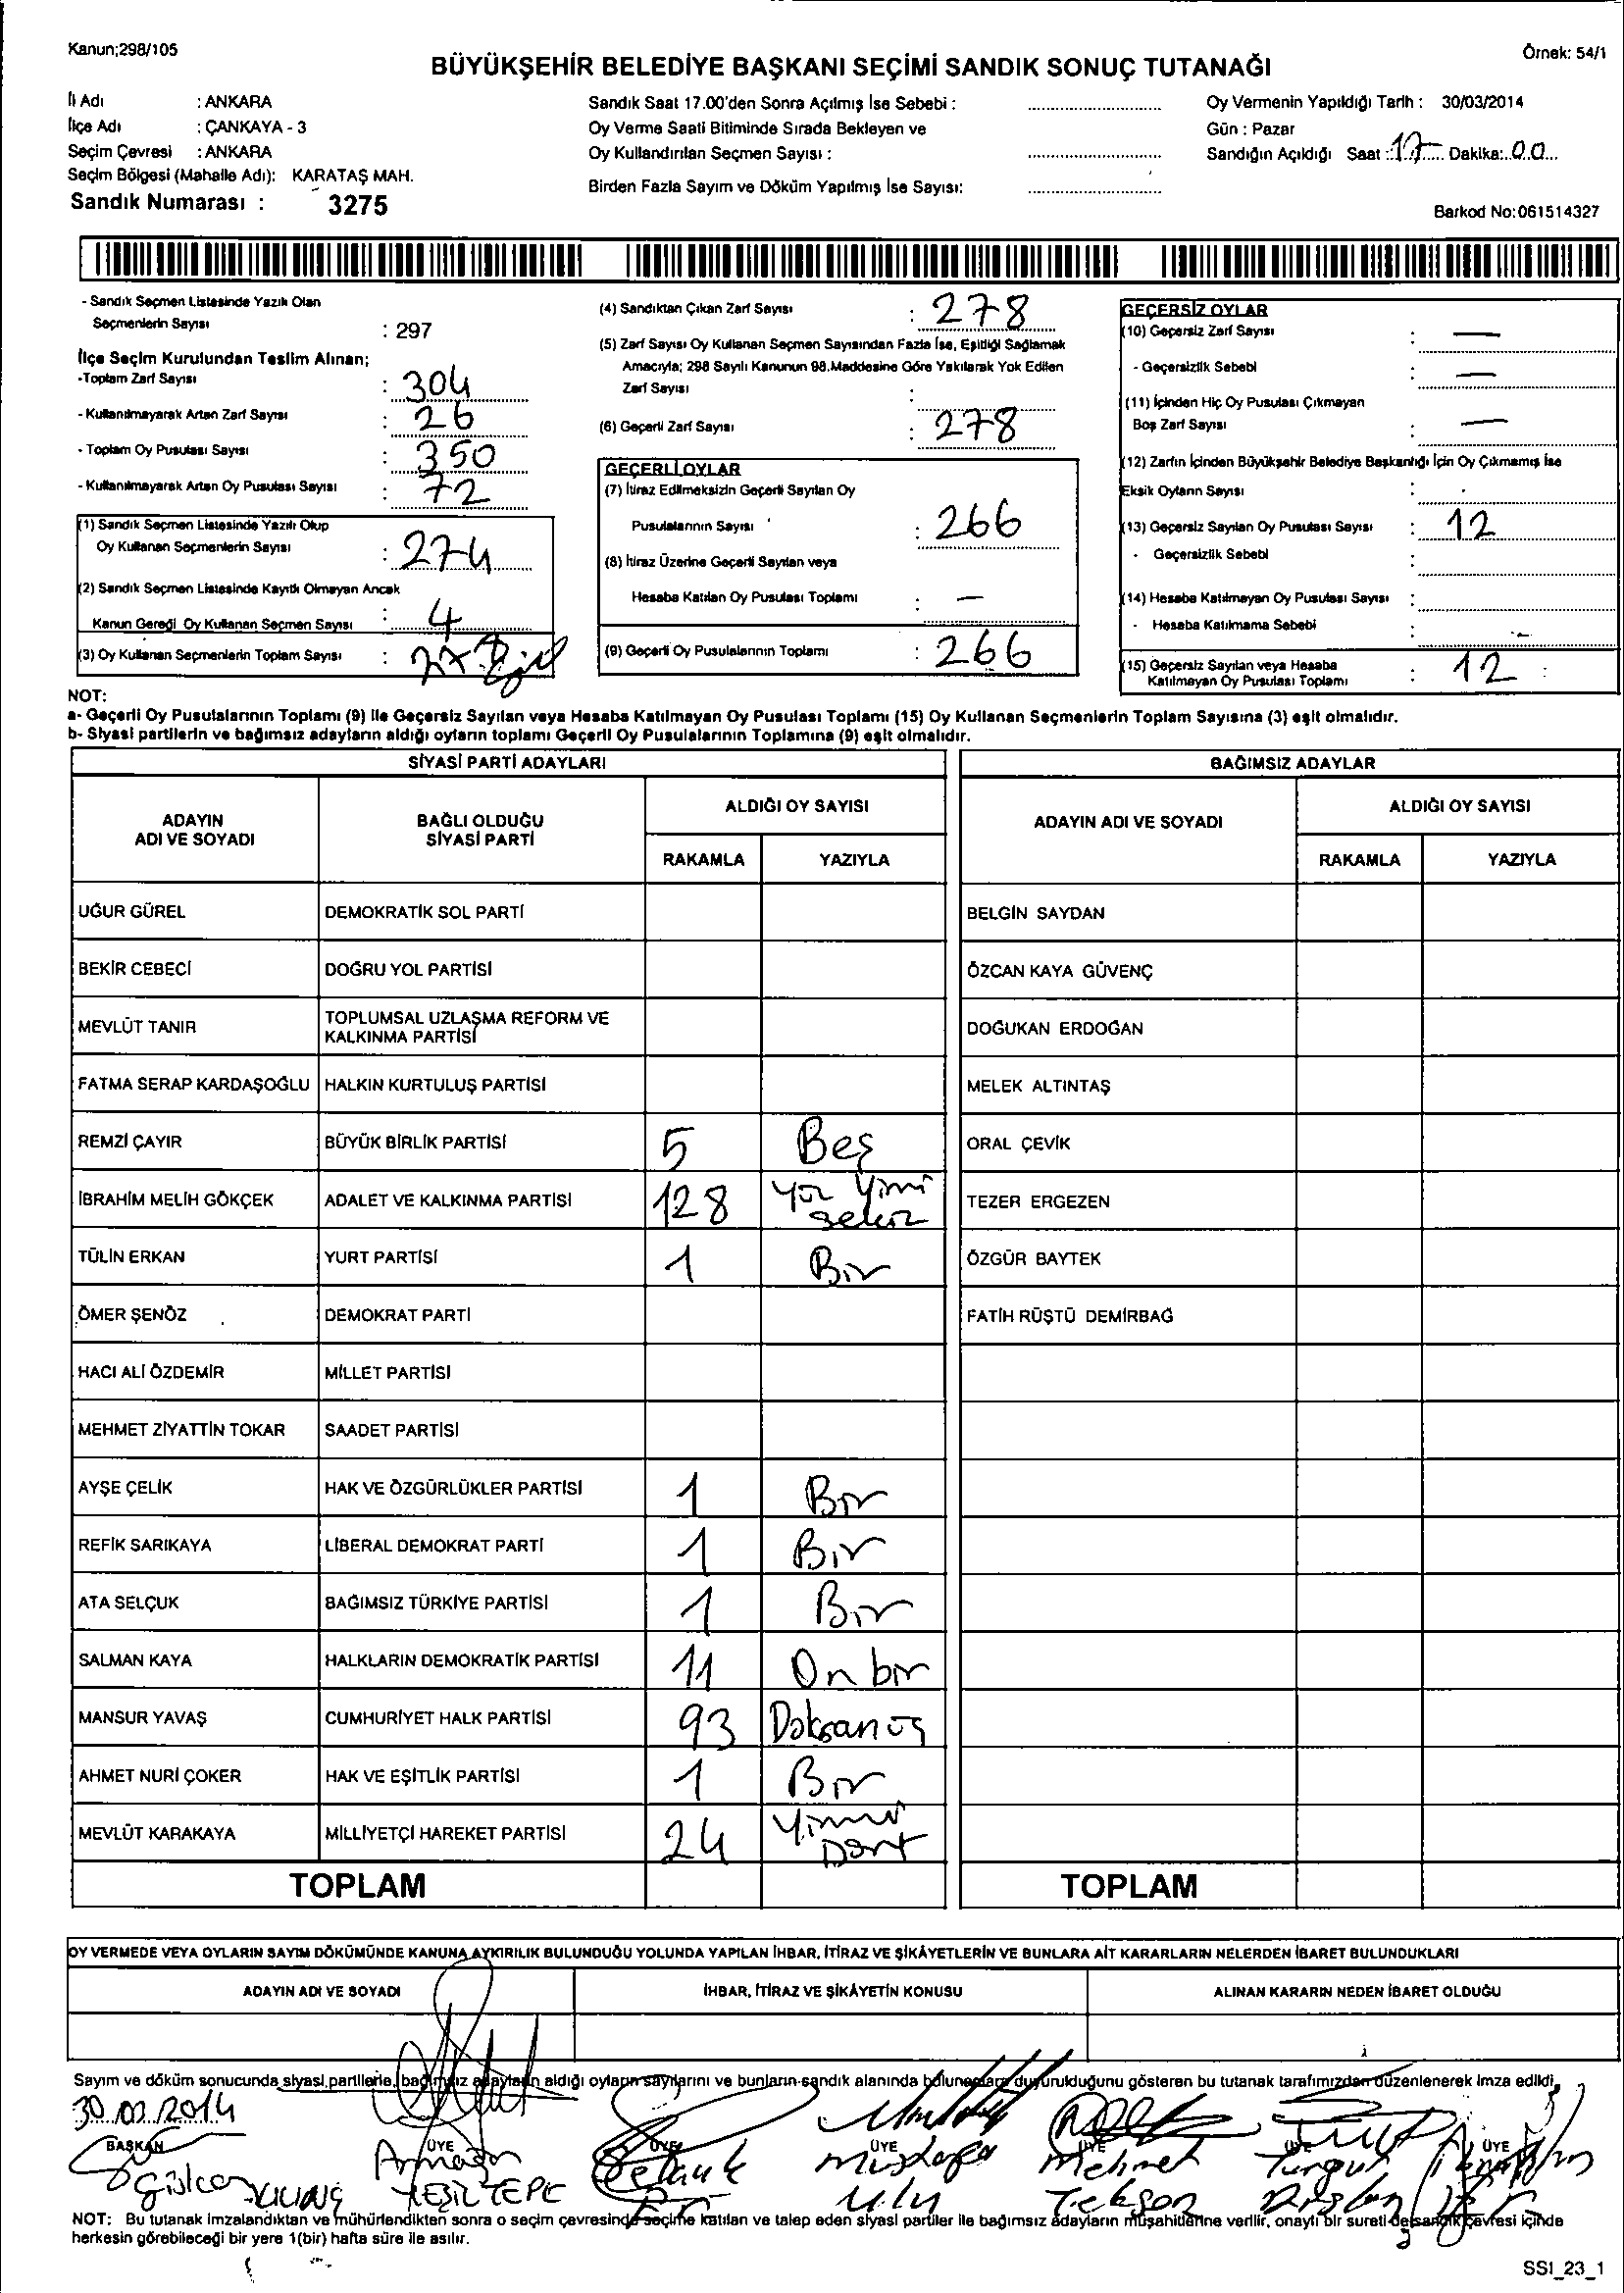 Kanun;298/105
Örnek: 54/1
BÜYÜKŞEHİR BELEDİYE BAŞKANI SEÇİMİ SANDIK SONUÇ TUTANAĞI
İl Adı : ANKARA
İlçe Adı : ÇANKAYA - 3
Seçim Çevresi : ANKARA
Seçim Bölgesi (Mahalle Adı): KARATAŞ MAH.
Sandık Numarası : 3275
Sandık Saat 17.00'den Sonra Açılmış İse Sebebi :
Oy Verme Saati Bitiminde Sırada Bekleyen ve
Oy Kullandırılan Seçmen Sayısı :
Birden Fazla Sayım ve Döküm Yapılmış İse Sayısı:
Oy Vermenin Yapıldığı Tarih : 30/03/2014
Gün : Pazar
Sandığın Açıldığı Saat : 17 Dakika: 00
Barkod No:061514327
- Sandık Seçmen Listesinde Yazılı Olan
Seçmenlerin Sayısı : 297
İlçe Seçim Kurulundan Teslim Alınan;
-Toplam Zarf Sayısı : 304
- Kullanılmayarak Artan Zarf Sayısı : 26
- Toplam Oy Pusulası Sayısı : 350
- Kullanılmayarak Artan Oy Pusulası Sayısı : 72
(1) Sandık Seçmen Listesinde Yazılı Olup
Oy Kullanan Seçmenlerin Sayısı : 274
(2) Sandık Seçmen Listesinde Kayıtlı Olmayan Ancak
Kanun Gereği Oy Kullanan Seçmen Sayısı : 4
(3) Oy Kullanan Seçmenlerin Toplam Sayısı :
(4) Sandıktan Çıkan Zarf Sayısı : 278
(5) Zarf Sayısı Oy Kullanan Seçmen Sayısından Fazla İse, Eşitliği Sağlamak
Amacıyla; 298 Sayılı Kanunun 98.Maddesine Göre Yakılarak Yok Edilen
Zarf Sayısı :
(6) Geçerli Zarf Sayısı : 278
GEÇERLİ OYLAR
(7) İtiraz Edilmeksizin Geçerli Sayılan Oy
Pusulalarının Sayısı : 266
(8) İtiraz Üzerine Geçerli Sayılan veya
Hesaba Katılan Oy Pusulası Toplamı : —
(9) Geçerli Oy Pusulalarının Toplamı : 266
GEÇERSİZ OYLAR
(10) Geçersiz Zarf Sayısı : —
- Geçersizlik Sebebi : —
(11) İçinden Hiç Oy Pusulası Çıkmayan
Boş Zarf Sayısı : —
(12) Zarfın İçinden Büyükşehir Belediye Başkanlığı İçin Oy Çıkmamış İse
Eksik Oyların Sayısı :
(13) Geçersiz Sayılan Oy Pusulası Sayısı : 12
- Geçersizlik Sebebi :
(14) Hesaba Katılmayan Oy Pusulası Sayısı :
- Hesaba Katılmama Sebebi :
(15) Geçersiz Sayılan veya Hesaba
Katılmayan Oy Pusulası Toplamı : 12
NOT:
a- Geçerli Oy Pusulalarının Toplamı (9) ile Geçersiz Sayılan veya Hesaba Katılmayan Oy Pusulası Toplamı (15) Oy Kullanan Seçmenlerin Toplam Sayısına (3) eşit olmalıdır.
b- Siyasi partilerin ve bağımsız adayların aldığı oyların toplamı Geçerli Oy Pusulalarının Toplamına (9) eşit olmalıdır.
SİYASİ PARTİ ADAYLARI
ADAYIN ADI VE SOYADI
BAĞLI OLDUĞU SİYASİ PARTİ
ALDIĞI OY SAYISI
RAKAMLA YAZIYLA
UĞUR GÜREL DEMOKRATİK SOL PARTİ
BEKİR CEBECİ DOĞRU YOL PARTİSİ
MEVLÜT TANIR TOPLUMSAL UZLAŞMA REFORM VE
KALKINMA PARTİSİ
FATMA SERAP KARDAŞOĞLU HALKIN KURTULUŞ PARTİSİ
REMZİ ÇAYIR BÜYÜK BİRLİK PARTİSİ 5 Beş
İBRAHİM MELİH GÖKÇEK ADALET VE KALKINMA PARTİSİ 128 Yüz Yimi
sekiz
TÜLİN ERKAN YURT PARTİSİ 1 Bir
ÖMER ŞENÖZ DEMOKRAT PARTİ
HACI ALİ ÖZDEMİR MİLLET PARTİSİ
MEHMET ZİYATTİN TOKAR SAADET PARTİSİ
AYŞE ÇELİK HAK VE ÖZGÜRLÜKLER PARTİSİ 1 Bir
REFİK SARIKAYA LİBERAL DEMOKRAT PARTİ 1 Bir
ATA SELÇUK BAĞIMSIZ TÜRKİYE PARTİSİ 1 Bir
SALMAN KAYA HALKLARIN DEMOKRATİK PARTİSİ 11 On bir
MANSUR YAVAŞ CUMHURİYET HALK PARTİSİ 93 Doksan üç
AHMET NURİ ÇOKER HAK VE EŞİTLİK PARTİSİ 1 Bir
MEVLÜT KARAKAYA MİLLİYETÇİ HAREKET PARTİSİ 24 Yimi
Dört
TOPLAM
BAĞIMSIZ ADAYLAR
ADAYIN ADI VE SOYADI
ALDIĞI OY SAYISI
RAKAMLA YAZIYLA
BELGİN SAYDAN
ÖZCAN KAYA GÜVENÇ
DOĞUKAN ERDOĞAN
MELEK ALTINTAŞ
ORAL ÇEVİK
TEZER ERGEZEN
ÖZGÜR BAYTEK
FATİH RÜŞTÜ DEMİRBAĞ
TOPLAM
OY VERMEDE VEYA OYLARIN SAYIM DÖKÜMÜNDE KANUNA AYKIRILIK BULUNDUĞU YOLUNDA YAPILAN İHBAR, İTİRAZ VE ŞİKÂYETLERİN VE BUNLARA AİT KARARLARIN NELERDEN İBARET BULUNDUKLARI
ADAYIN ADI VE SOYADI
İHBAR, İTİRAZ VE ŞİKÂYETİN KONUSU
ALINAN KARARIN NEDEN İBARET OLDUĞU
Sayım ve döküm sonucunda siyasi partilerle, bağımsız adayların aldığı oyların sayılarını ve bunların sandık alanında bulunanlara duyurulduğunu gösteren bu tutanak tarafımızdan düzenlenerek imza edildi.
30.03.2014
BAŞKAN ÜYE ÜYE ÜYE ÜYE ÜYE ÜYE
Armağan Mustafa Mehmet Turgut
KILINÇ YEŞİLTEPE Ulu Tekşen Arslan
NOT: Bu tutanak imzalandıktan ve mühürlendikten sonra o seçim çevresinde seçime katılan ve talep eden siyasi partiler ile bağımsız adayların müşahitlerine verilir, onaylı bir sureti de sandık çevresi içinde
herkesin görebileceği bir yere 1(bir) hafta süre ile asılır.
SSI_23_1